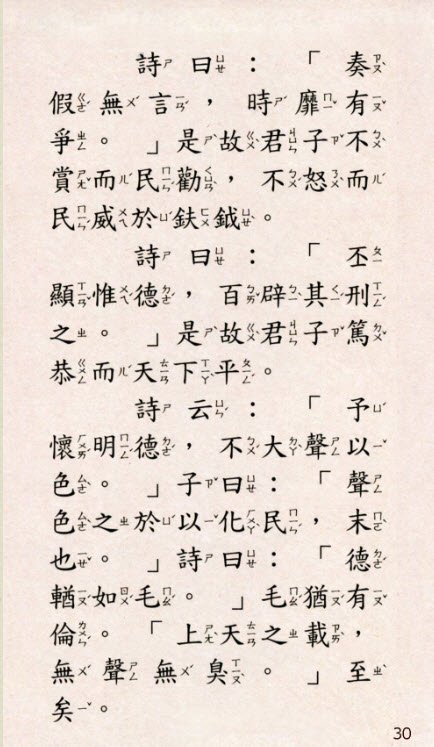 詩曰：「奏
假無言，時靡有
爭。」是故君子不
賞而民勸，不怒而
民威於鈇鉞。
詩曰：「丕
顯惟德，百辟其刑
之。」是故君子篤
恭而天下平。
詩云：「予
懷明德，不大聲以
色。」子曰：「聲
色之於以化民，末
也。」詩曰：「德
輶如毛。」毛猶有
倫。「上天之載，
無聲無臭。」至
矣。
30